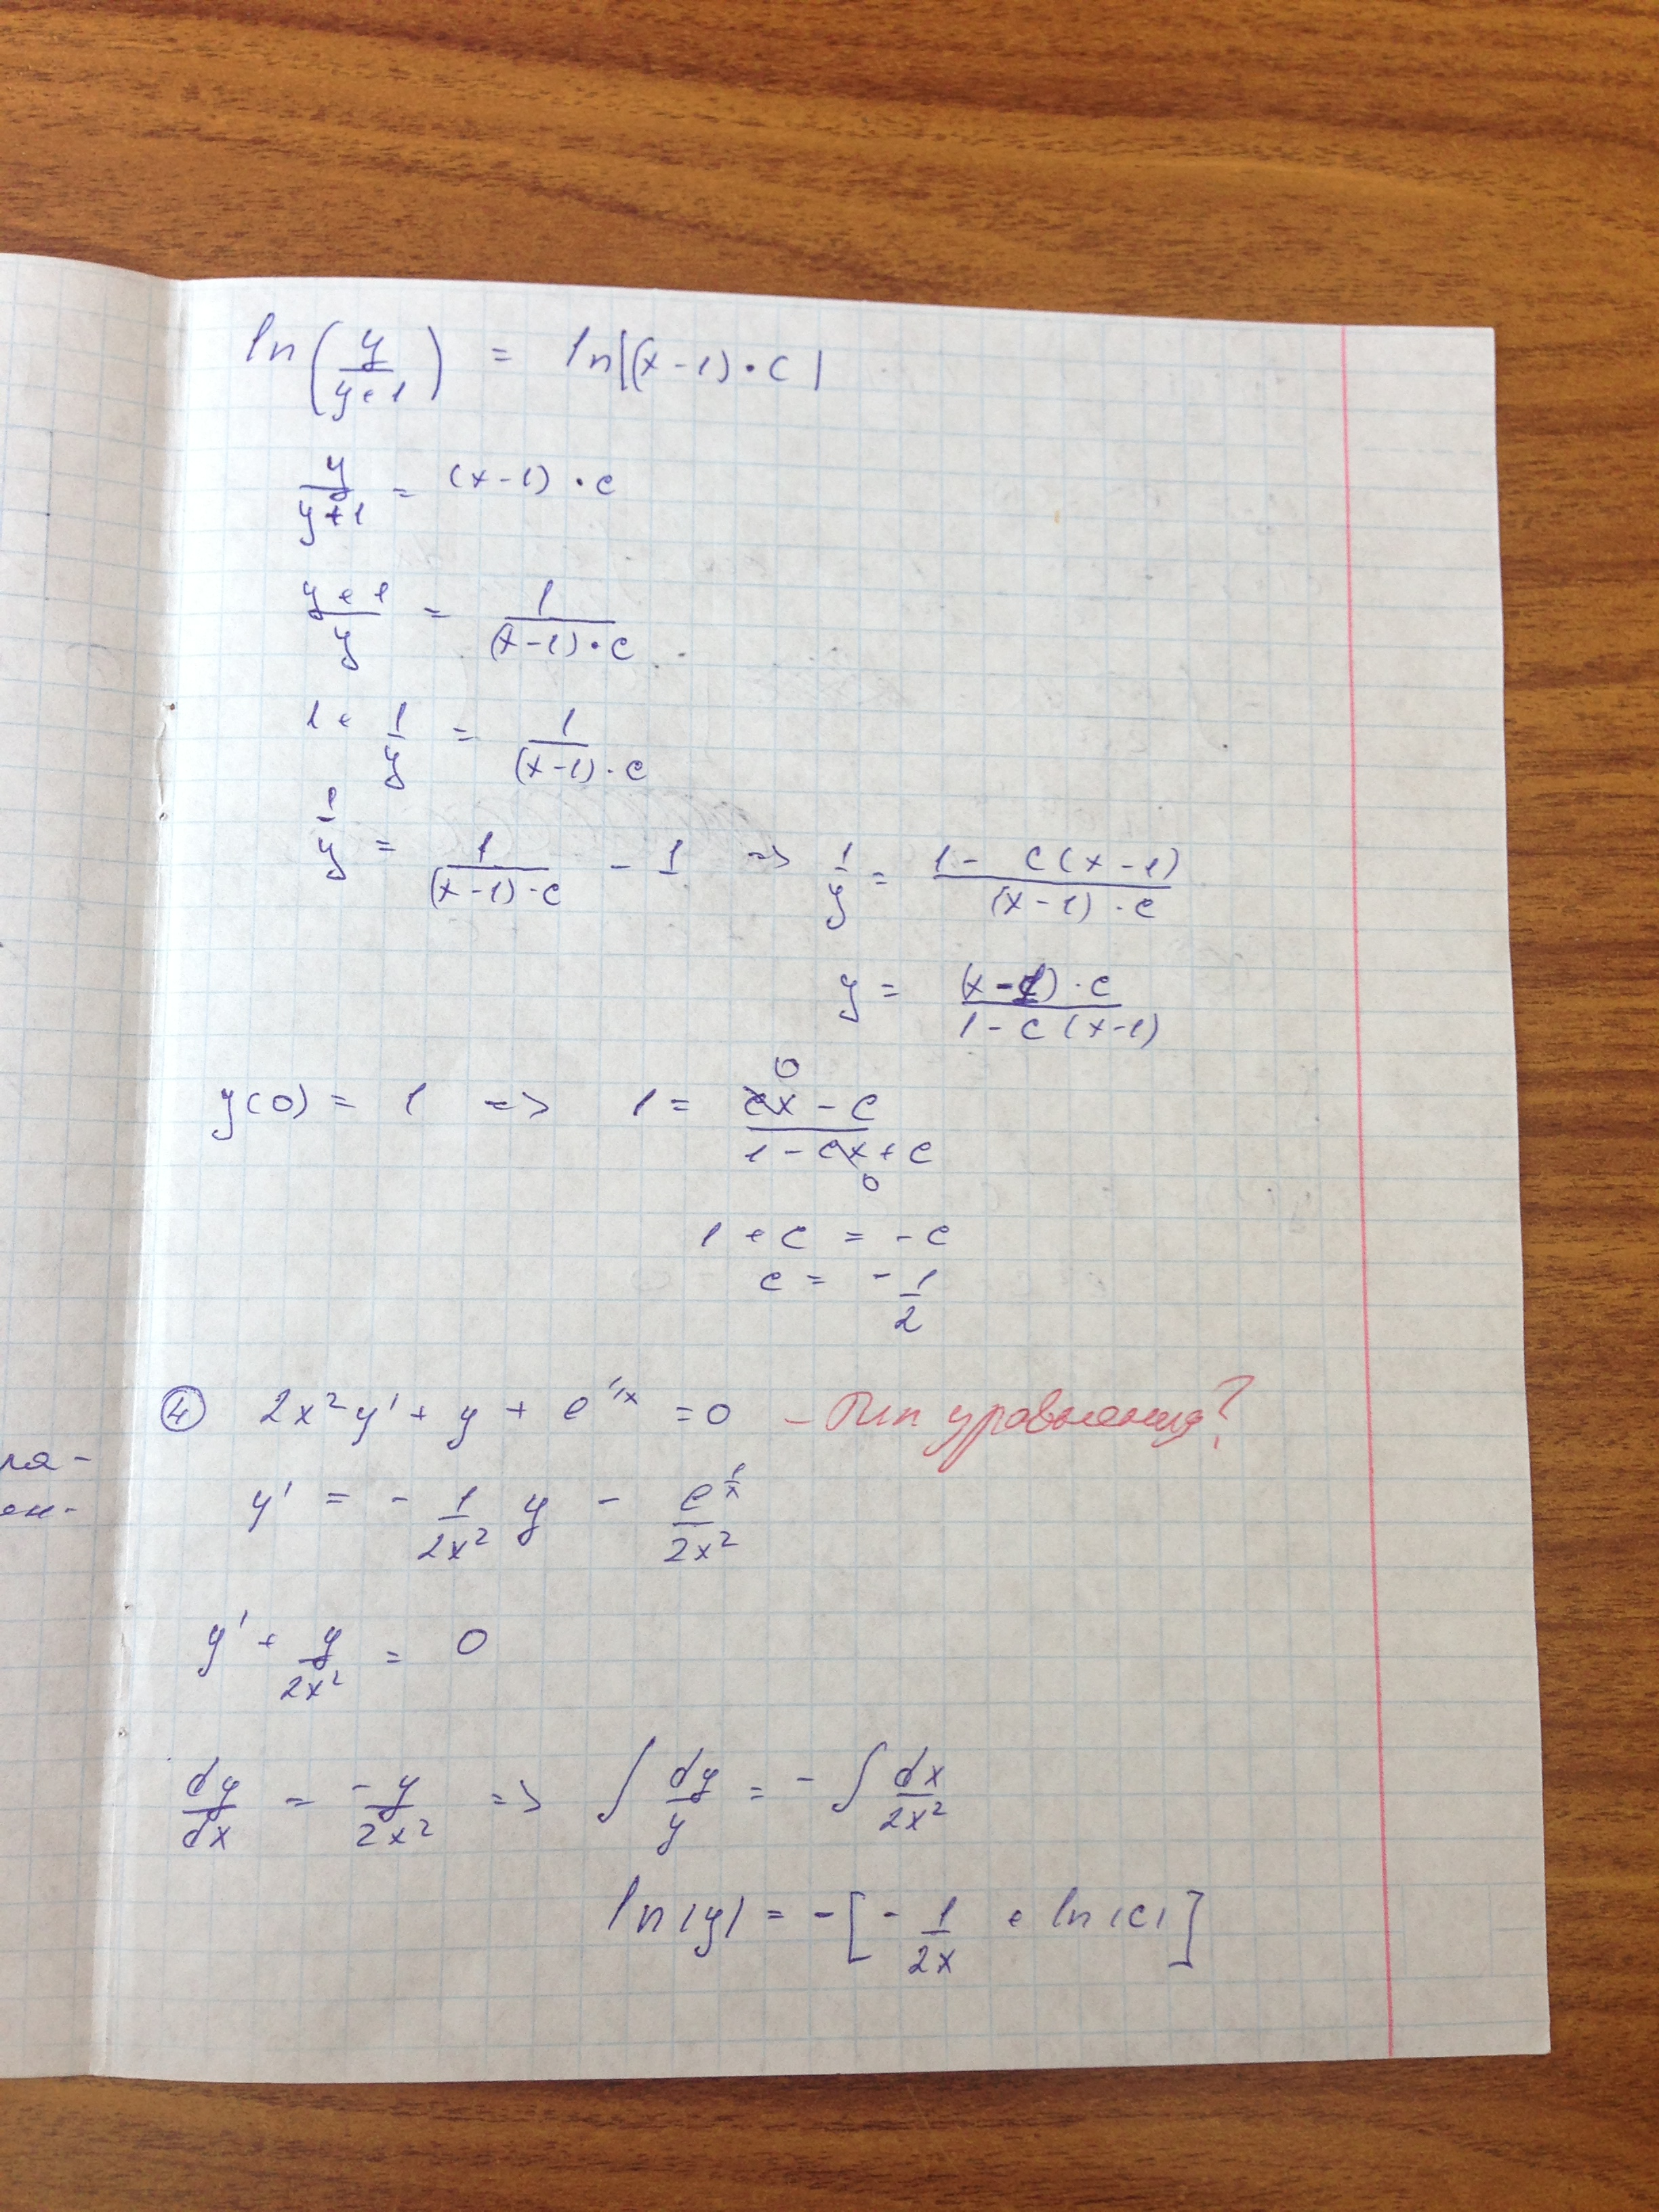 ln(y/(y+1)) = ln|(x-1)·c|
y/(y+1) = (x-1)·c
(y+1)/y = 1/((x-1)·c)
1 + 1/y = 1/((x-1)·c)
1/y = 1/((x-1)·c) - 1 => 1/y = (1 - c(x-1))/((x-1)·c)
y = ((x-1)·c)/(1 - c(x-1))
y(0) = 1 => 1 = (cx - c)/(1 - cx + c)
0
0
1 + c = -c
c = -1/2
④ 2x²y' + y + e^(1/x) = 0 - Тип уравнения?
y' = - 1/(2x²) y - e^(1/x)/(2x²)
y' + y/(2x²) = 0
dy/dx = -y/(2x²) => ∫ dy/y = - ∫ dx/(2x²)
ln|y| = -[- 1/(2x) + ln|c|]
ла-
ен-